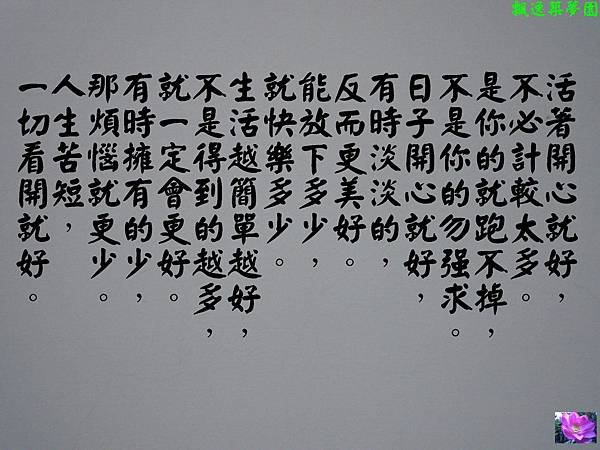 飄逸築夢園
活著開心就好，
不必計較太多。
是你的就跑不掉，
不是你的勿强求。
日子開心就好，
有時淡淡的，
反而更美好。
能放下多少，
就快樂多少。
生活越簡單越好，
不是得到的越多，
就一定會更好。
有時擁有的少，
那煩惱就更少。
人生苦短，
一切看開就好。